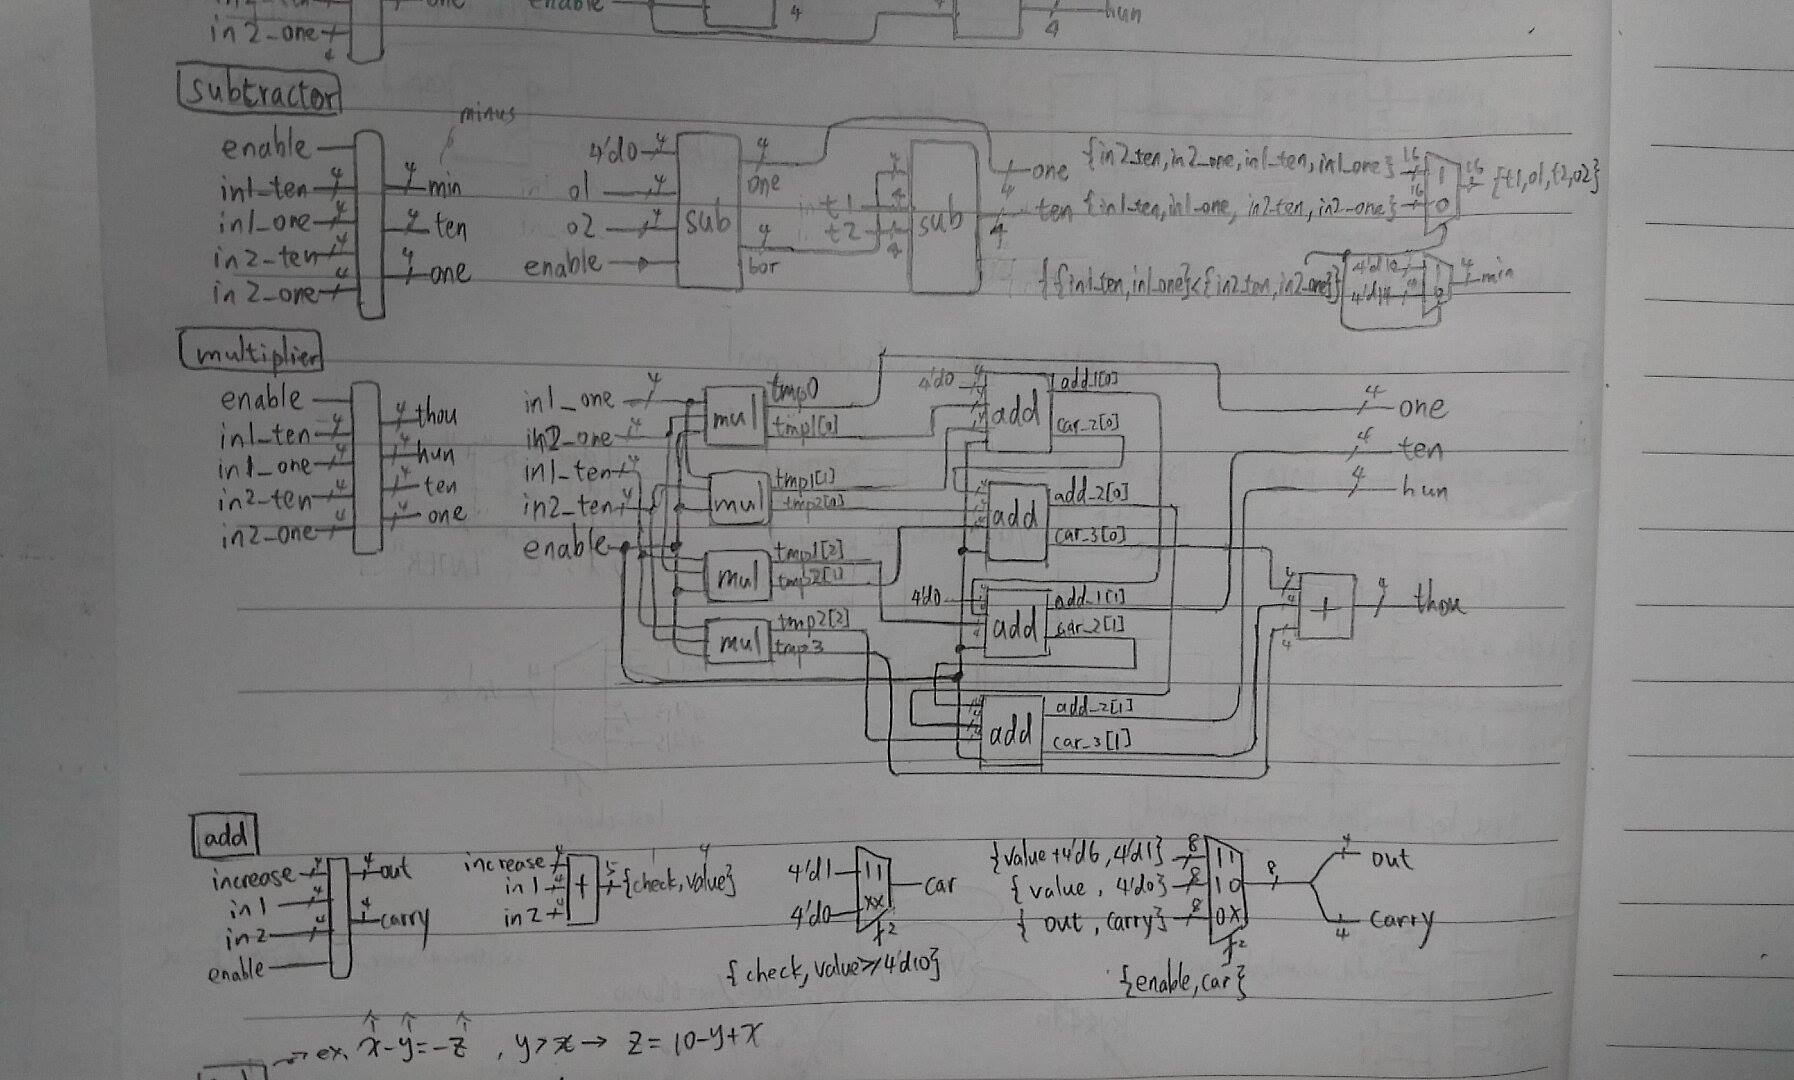 one
enable
4
hun
in2_one
4
4
subtractor
minus
enable
in1_ten 4
in1_one 4
in2_ten 4
in2_one 4
4 min
4 ten
4 one
4'd0 4
o1 4
o2 4
enable
sub
4
one
4
bor
t1 4
t2 4
sub
one
4
ten
4
{in2_ten,in2_one,in1_ten,in1_one} 16
{in1_ten,in1_one, in2_ten,in2_one} 16
1
0
16 {t1,o1,t2,o2}
{{in1_ten,in1_one}<{in2_ten,in2_one}}
4 min
multiplier
enable
in1_ten 4
in1_one 4
in2_ten 4
in2_one 4
4 thou
4 hun
4 ten
4 one
in1_one 4
in2_one 4
in1_ten 4
in2_ten 4
enable
mul
tmp0
tmp1[0]
mul
tmp1[1]
tmp2[0]
mul
tmp1[2]
tmp2[1]
mul
tmp2[2]
tmp3
4'd0
add
add_1[0]
car_2[0]
add
add_2[0]
car_3[0]
4'd0
add
add_1[1]
car_2[1]
add
add_2[1]
car_3[1]
4 one
4 ten
4 hun
4
4
4
+
4 thou
add
increase 4
in1 4
in2 4
enable
4 out
4 carry
increase 4
in1 4
in2 4
+
5 {check,value}
4
4'd1 11
4'd0 xx
car
2
{check,value≥4'd10}
{value+4'd6,4'd1} 8 11
{value, 4'd0} 8 10
{out,carry} 8 0X
2
{enable,car}
8
4 out
4 carry
→ ex. x-y=-z , y>x → z=10-y+x